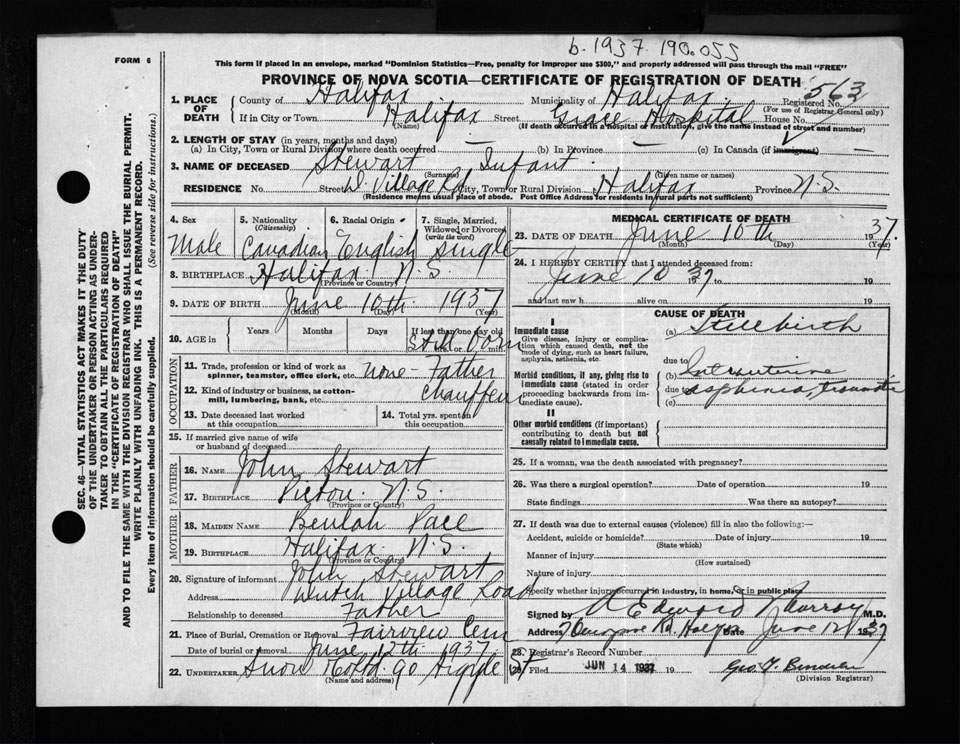 b. 1937. 190.055
FORM 6
This form if placed in an envelope, marked "Dominion Statistics—Free, penalty for improper use $300," and properly addressed will pass through the mail "FREE"
PROVINCE OF NOVA SCOTIA—CERTIFICATE OF REGISTRATION OF DEATH
563
Registered No.
(For use of Registrar General only)
1. PLACE OF DEATH
County of Halifax Municipality of Halifax
If in City or Town Halifax Street Grace Hospital House No.
(Name) (If death occurred in a hospital or institution, give the name instead of street and number)
2. LENGTH OF STAY (in years, months and days)
(a) In City, Town or Rural Division where death occurred — (b) In Province — (c) In Canada (if immigrant) —
3. NAME OF DECEASED Stewart Infant
(Surname) (Given name or names)
RESIDENCE No. Street D. Village Rd City, Town or Rural Division Halifax Province N.S.
(Residence means usual place of abode. Post Office Address for residents in rural parts not sufficient)
4. Sex
Male
5. Nationality
(Citizenship)
Canadian
6. Racial Origin
English
7. Single, Married, Widowed or Divorced
(write the word)
Single
8. BIRTHPLACE Halifax N.S.
(Province or Country)
9. DATE OF BIRTH June 10th 1937
(Month) (Day) (Year)
10. AGE in Years Months Days If less than one day old
Still born
hrs. or min.
OCCUPATION
11. Trade, profession or kind of work as spinner, teamster, office clerk, etc. none - Father
12. Kind of industry or business, as cotton-mill, lumbering, bank, etc. Chauffeur
13. Date deceased last worked at this occupation
14. Total yrs. spent in this occupation
15. If married give name of wife or husband of deceased
FATHER
16. NAME John Stewart
17. BIRTHPLACE Pictou N.S.
(Province or Country)
MOTHER
18. MAIDEN NAME Beulah Pace
19. BIRTHPLACE Halifax N.S.
(Province or Country)
20. Signature of informant John Stewart
Address Dutch Village Road
Relationship to deceased Father
21. Place of Burial, Cremation or Removal Fairview Cem
Date of burial or removal June 12th 1937
22. UNDERTAKER Snow & Co Ltd. 90 Argyle St
(Name and address)
MEDICAL CERTIFICATE OF DEATH
23. DATE OF DEATH June 10th 1937.
(Month) (Day) (Year)
24. I HEREBY CERTIFY that I attended deceased from:
June 10 1937 to 19
and last saw h alive on 19
CAUSE OF DEATH
I
Immediate cause
Give disease, injury or complication which caused death, not the mode of dying, such as heart failure, asphyxia, asthenia, etc.
(a) Stillbirth
due to
Morbid conditions, if any, giving rise to immediate cause (stated in order proceeding backwards from immediate cause).
(b) Intrauterine
due to asphyxia, traumatic
(c)
II
Other morbid conditions (if important) contributing to death but not causally related to immediate cause.
25. If a woman, was the death associated with pregnancy?
26. Was there a surgical operation? Date of operation 19
State findings Was there an autopsy?
27. If death was due to external causes (violence) fill in also the following:—
Accident, suicide or homicide? Date of injury 19
(State which)
Manner of injury
(How sustained)
Nature of injury
Specify whether injury occurred in industry, in home, or in public place
Signed by A Edward Murray M.D.
Address Date June 12 1937
28. Registrar's Record Number
29. Filed JUN 14 1937 19
(Division Registrar)
SEC. 46—VITAL STATISTICS ACT MAKES IT THE DUTY
OF THE UNDERTAKER OR PERSON ACTING AS UNDERTAKER TO OBTAIN ALL THE PARTICULARS REQUIRED
IN THE "CERTIFICATE OF REGISTRATION OF DEATH"
AND TO FILE THE SAME WITH THE DIVISION REGISTRAR WHO SHALL ISSUE THE BURIAL PERMIT.
WRITE PLAINLY WITH UNFADING INK. THIS IS A PERMANENT RECORD.
Every item of information should be carefully supplied. (See reverse side for instructions.)